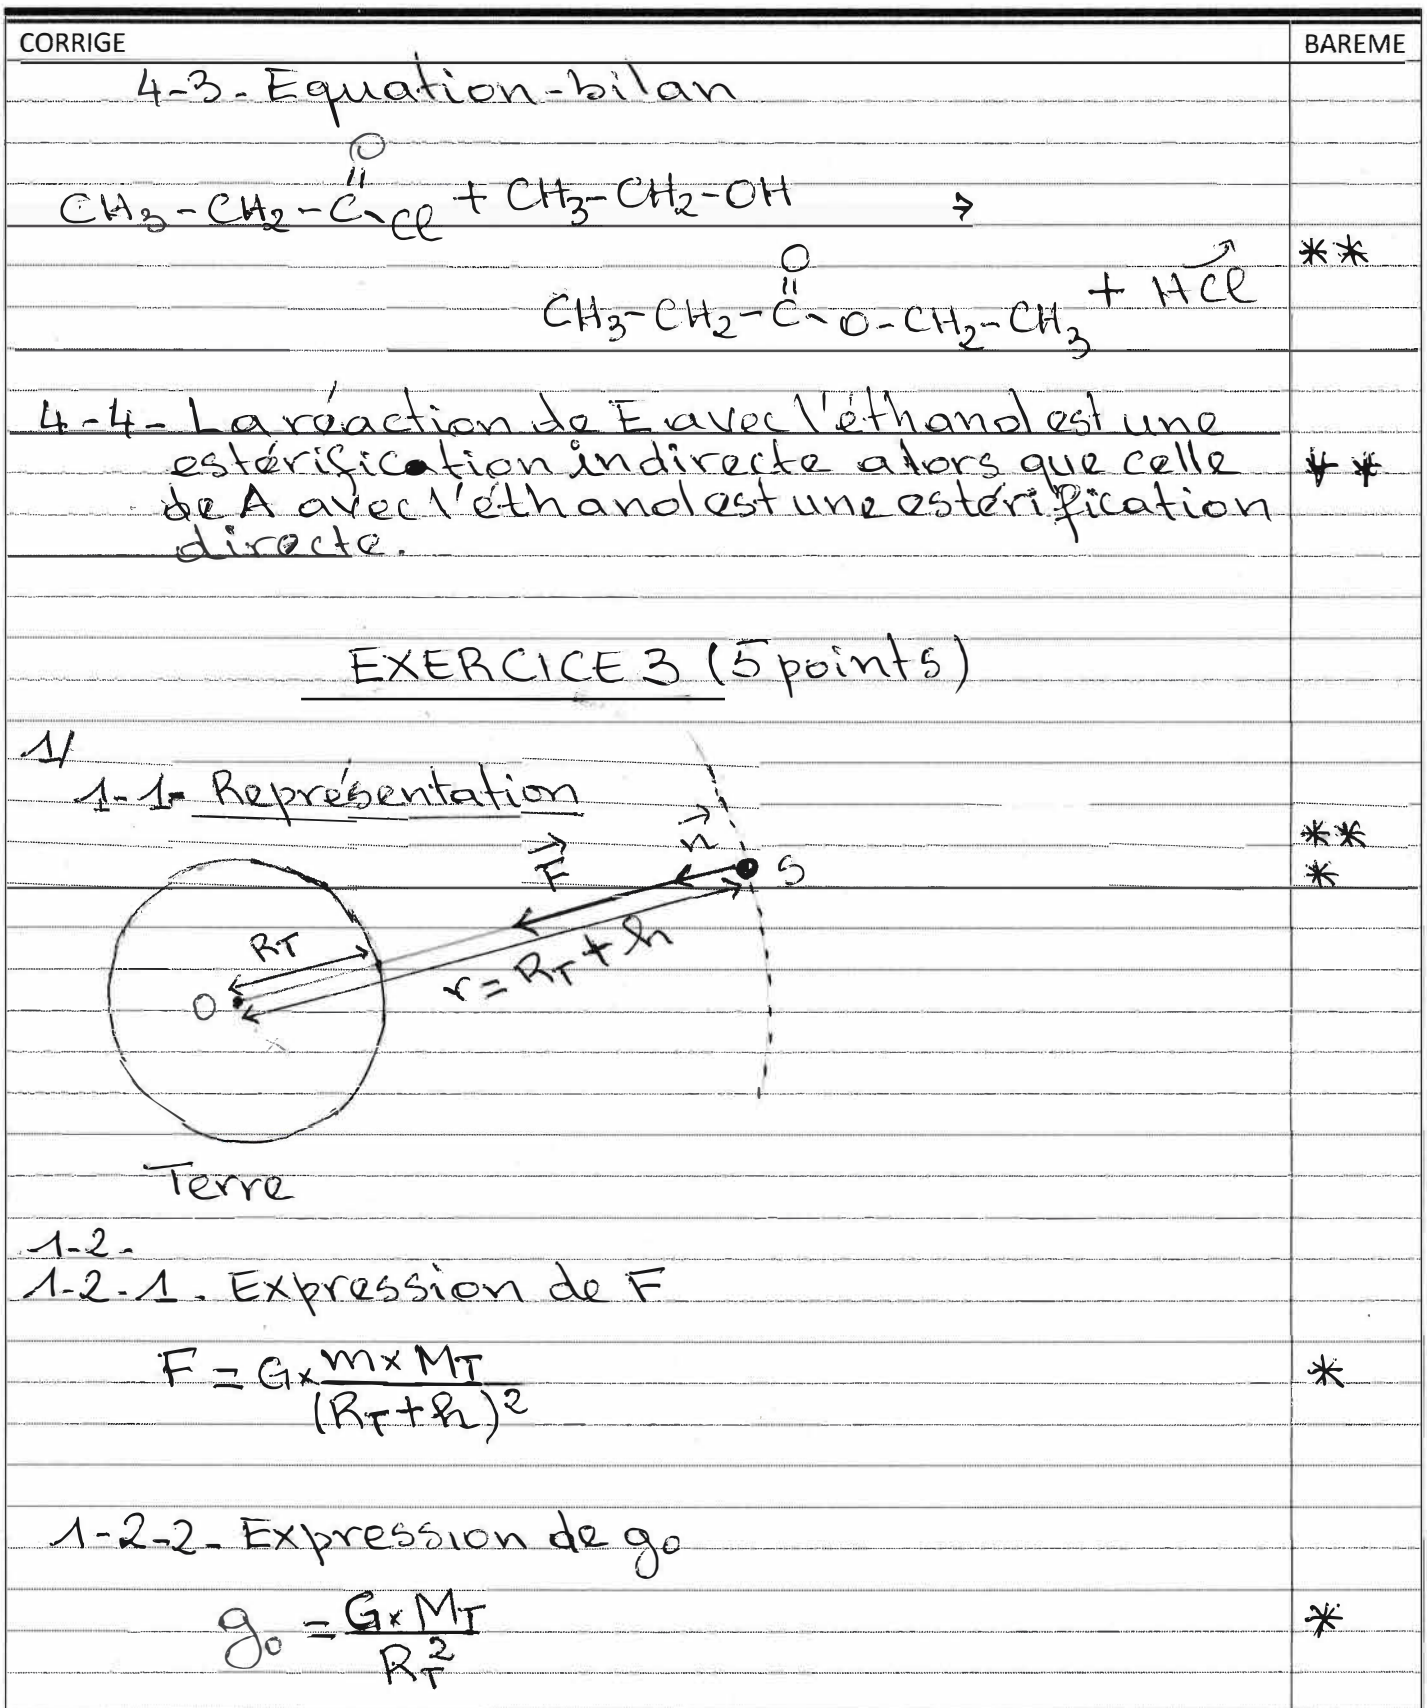 CORRIGE BAREME
4-3- Equation-bilan
O
||
CH3-CH2-C-Cl + CH3-CH2-OH →
**
O
||
CH3-CH2-C-O-CH2-CH3 + HCl
4-4- La réaction de E avec l'éthanol est une
estérification indirecte alors que celle **
de A avec l'éthanol est une estérification
directe.
EXERCICE 3 (5 points)
1/
1-1- Représentation
**
*
n
F
S
RT
r = RT + h
O
Terre
1-2-
1-2-1. Expression de F
F = G × m × MT / (RT + h)² *
1-2-2- Expression de g₀
g₀ = G × MT / RT² *